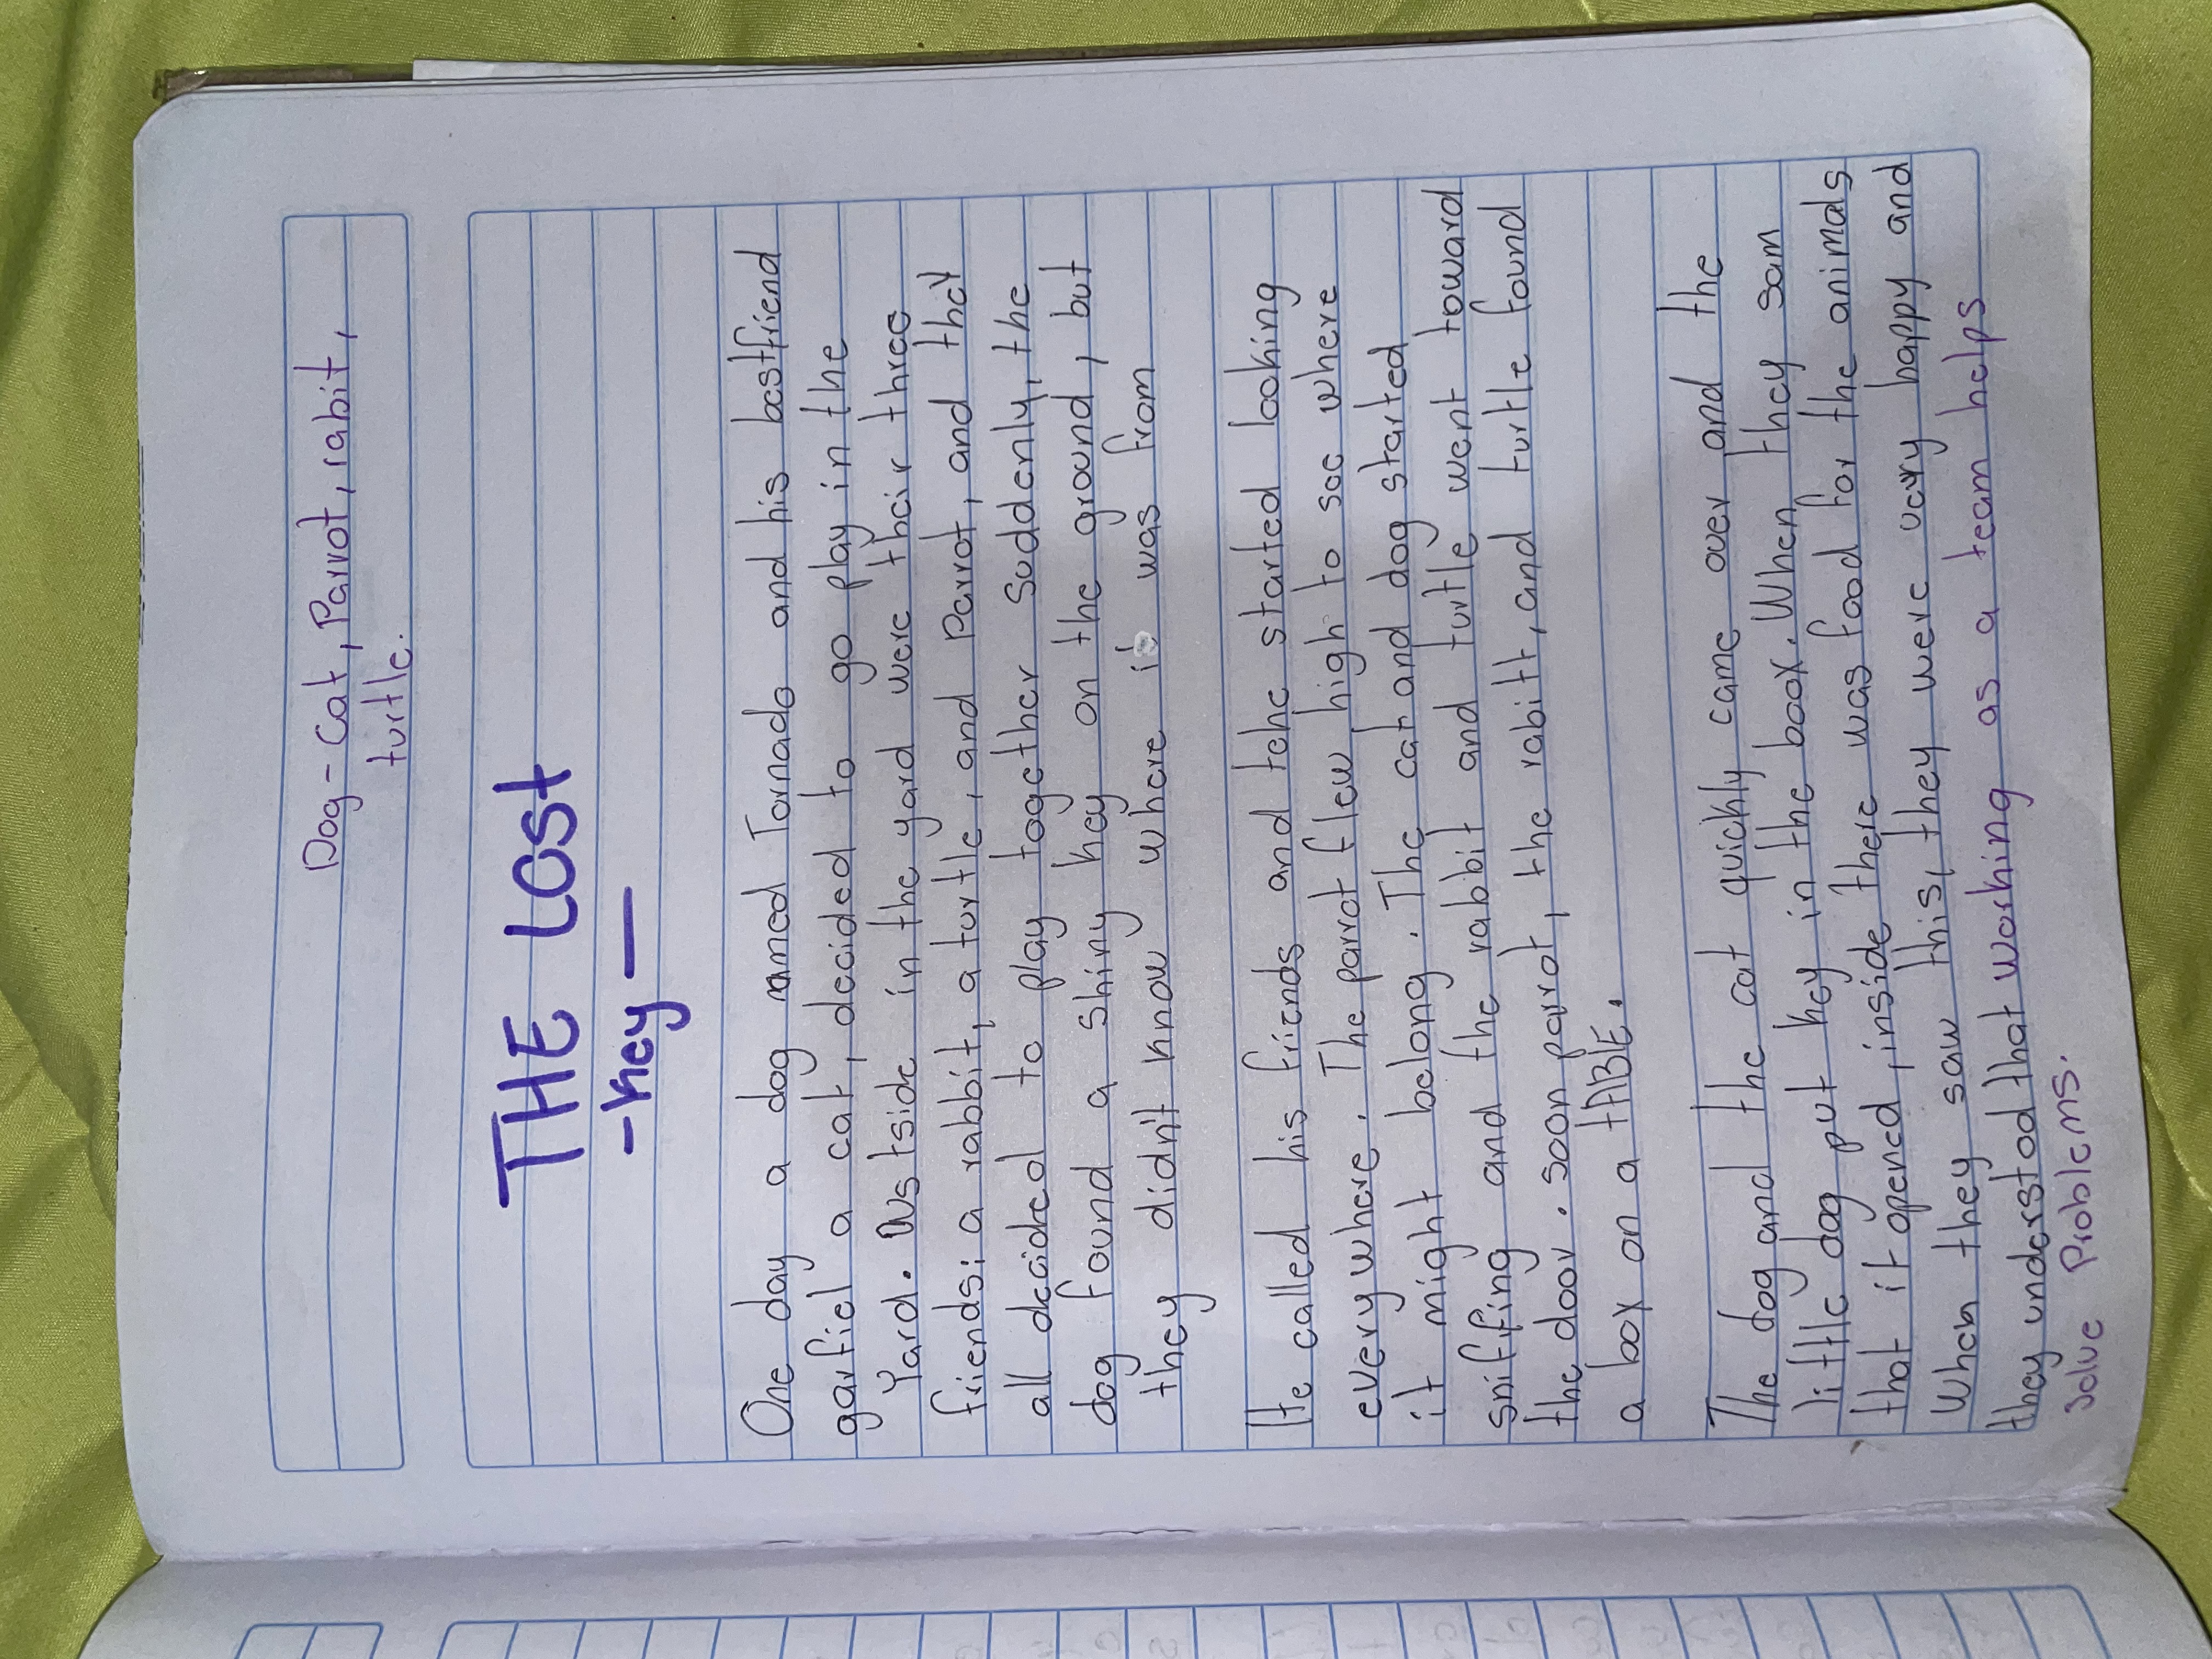 Dog - Cat, Parrot, rabit,
turtle.
THE LOST
- key -
One day a dog named Tornado and his bestfriend
garfiel a cat, decided to go play in the
Yard. Ustside in the yard were their three
friends: a rabbit, a turtle, and Parrot, and they
all decided to play together suddenly, the
dog found a shiny key on the ground, but
they didn't know where it was from
He called his friends and tehe started looking
every where. The parrot flew high to see where
it might belong. The cat and dog started
sniffing and the rabbit and turtle went toward
the door. soon parrot, the rabitt, and turtle found
a box on a tABLE.
The dog and the cat quickly came over and the
little dog put key in the boox. When they sam
that it opened, inside there was food for the animals
When they saw this, they were very happy and
they understod that working as a team helps
solve Problems.